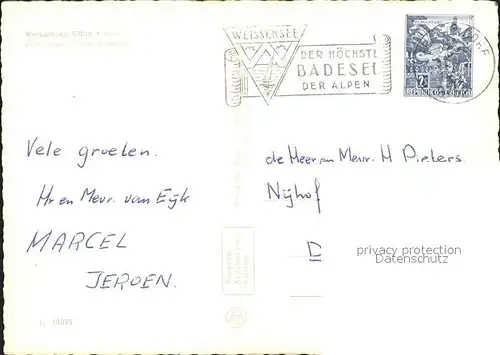 Weissensee
WEISSENSEE
DER HÖCHSTE
BADESEE
DER ALPEN
KLAGENFURT
2S
REPUBLIK ÖSTERREICH
Vele groeten.
Hr en Mevr. van Eijk
MARCEL
JEROEN.
de Heer en Mevr. H Pieters
Nijhof
D
privacy protection
Datenschutz